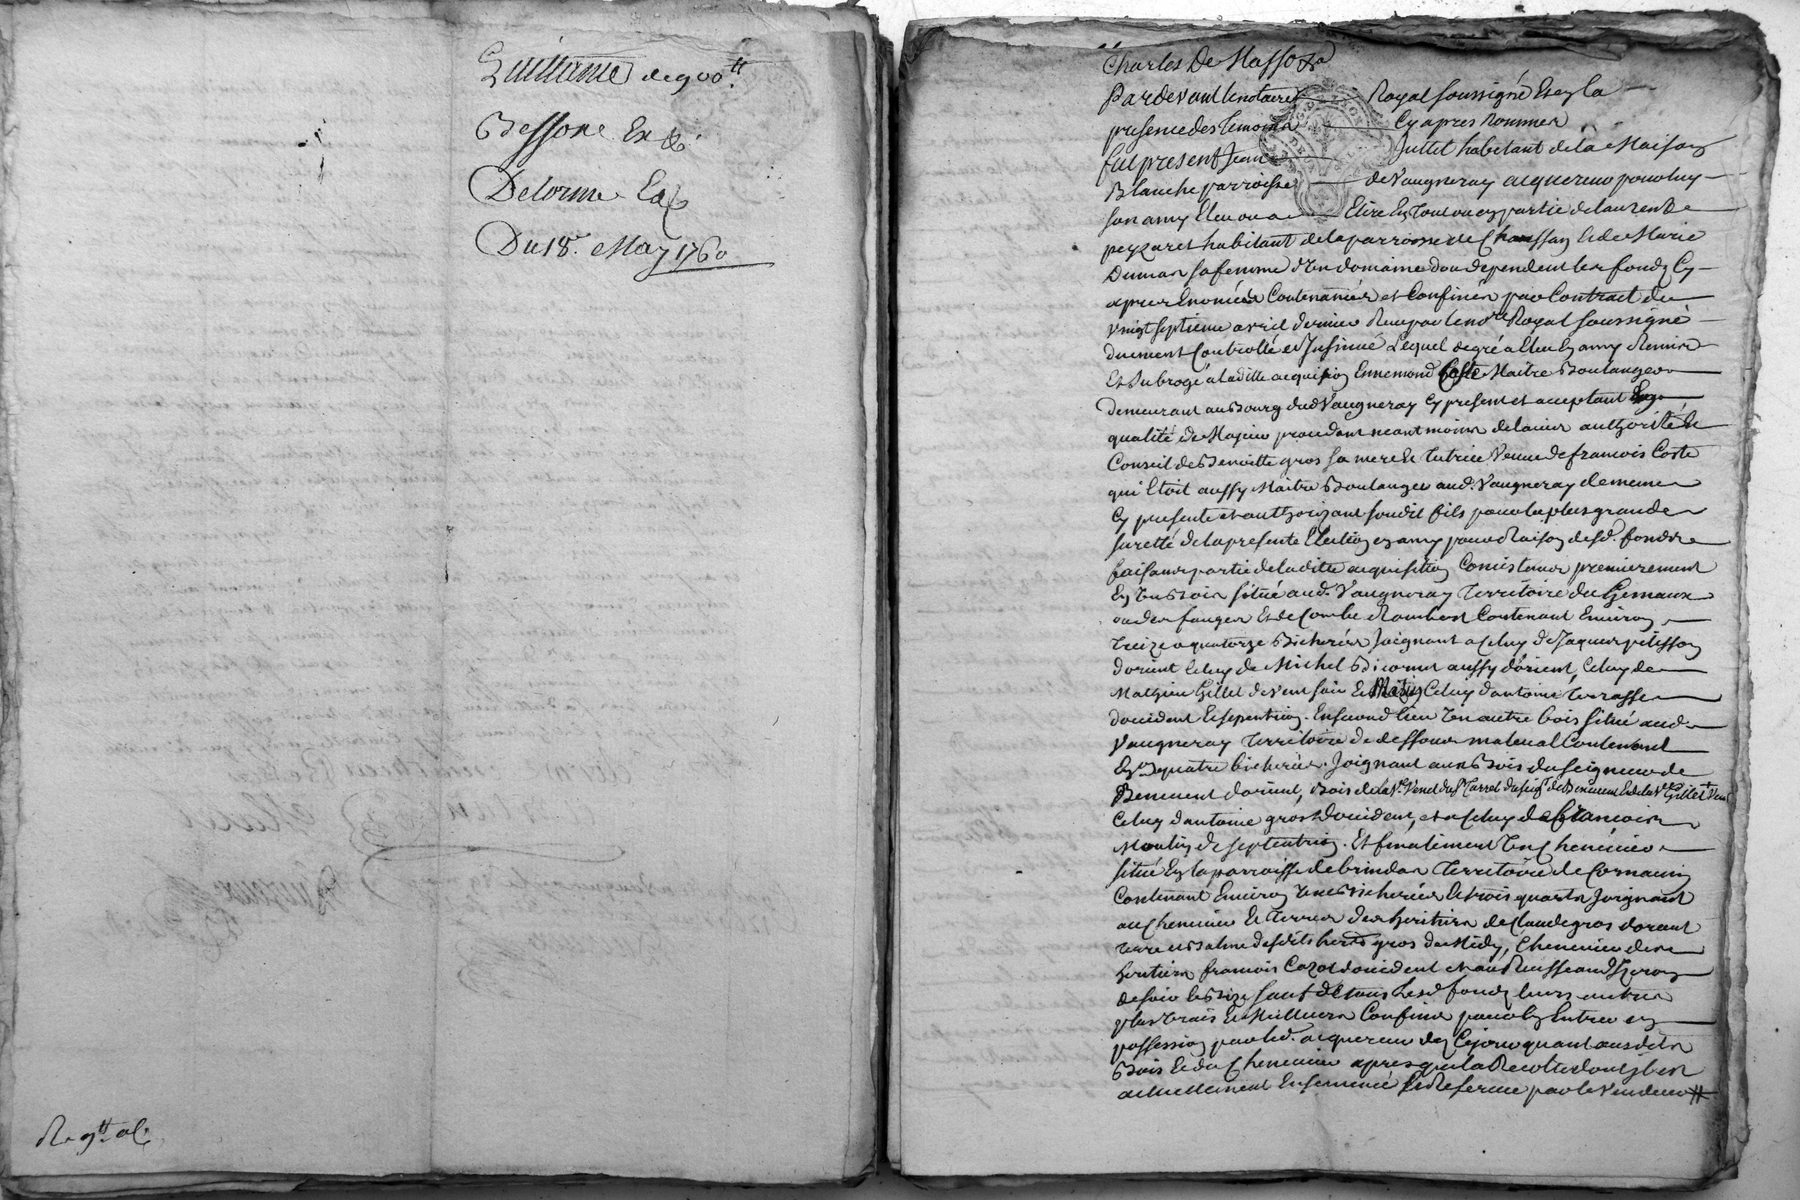 Quittance de 900 tt
Bessone Ex
Delorme Ex
Du 18. May 1760
Charles De Masso
Pardevant le notaire Royal soussigné Et en la
presence des temoins Cy apres nommer
fut present Jean Juttet habitant de la Maison
Blanche parroisse de Vaugneray acquereur pour luy
son amy Eleu ou a Elire En tout ou en partie de laurent
peyzaret habitant de la parroisse de Chaussan et de Marie
Dumas sa femme d'Un domaine dou dependent les fonds Cy
apres Enoncés Contenanciés et Confinés par Contract du
vingt septieme avril dernier Receu par le nore Royal soussigné
duement Controllé et Insinué Lequel degré a Eleu En amy Remis
Et subrogé a la ditte acquision Ennemond Coste Maitre Boulanger
demeurant au Bourg dud Vaugneray Cy present et aceptant
qualité de Majeur procedant neantmoins de lavis authorité et
Conseil de Benoitte gros sa mere et tutrice Veuve de francois Coste
qui Etoit aussy Maitre Boulanger aud. Vaugneray demême
Cy presente et authorizant son dit fils pour la plus grande
suretté de la presente Election en amy pour Raison desd. fonds
faisant partie de la ditte acquisition Consistans premierement
En Un Bois situé aud. Vaugneray territoire du Gemaux
ou des fanges Et de Combe Rambert Contenant Environ
treize a quatorze Bicherées Joignant a Celuy de Jaques pelisson
dorient Celuy de Michel Bicornet aussy dorient, Celuy de
Mathieu Gillet de Vent soir et Matin Celuy dantoine terrasse
doccident Et septentrion. En second lieu Un autre bois situé aud.
Vaugneray territoire de dessous mateual Contenant
Enon quatre bicherées Joignant aux Bois du seigneur de
Benevent dorient, Bois de la Ve
Celuy dantoine gros doccident, et a Celuy de francois
Moulin de septentrion. Et finalement Un Chenevier
situé En la parroisse de brindas territoire de Cornacin
Contenant Environ Une Bicherée Et trois quarts Joignant
au Chenevier Et terres des heritiers de Claude gros dorient
terre et Balme desdits hers gros de Midy, Chenevier des
heritiers francois Cazot doccident et au Ruisseau
de soir Et Bize sauf de tous lesd fonds leurs autres
plus Vrais Et Meilleurs Confins pour En Entrer en
possession par led. acquereur des Cejour quant ausdits
Bois Et du Chenevier apres que la Recolte dont il est
actuellement Ensemencé Et Reservée par le Vendeur